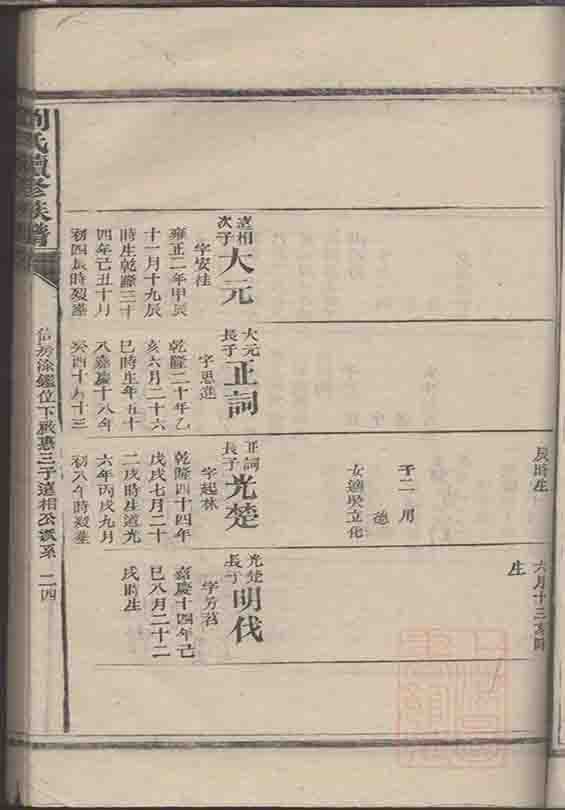 辰時生
六月十三亥時
生
子二 用
德
女適吳立化
遠相
次子
大元
字安桂
雍正二年甲辰
十一月十九辰
時生乾隆三十
四年己丑十月
初四辰時歿葬
大元
長子
正詞
字思進
乾隆二十年乙
亥六月二十六
巳時生年五十
八嘉慶十八年
癸酉十月十三
正詞
長子
光楚
字起林
乾隆四十四年
戊戌七月二十
二戌時生道光
六年丙戌九月
初八午時歿葬
光楚
長子
明伐
字芳茗
嘉慶十四年己
巳八月二十二
戌時生
劉氏續修族譜
信房涂鑑位下啟惠三子遠相公派系 二四